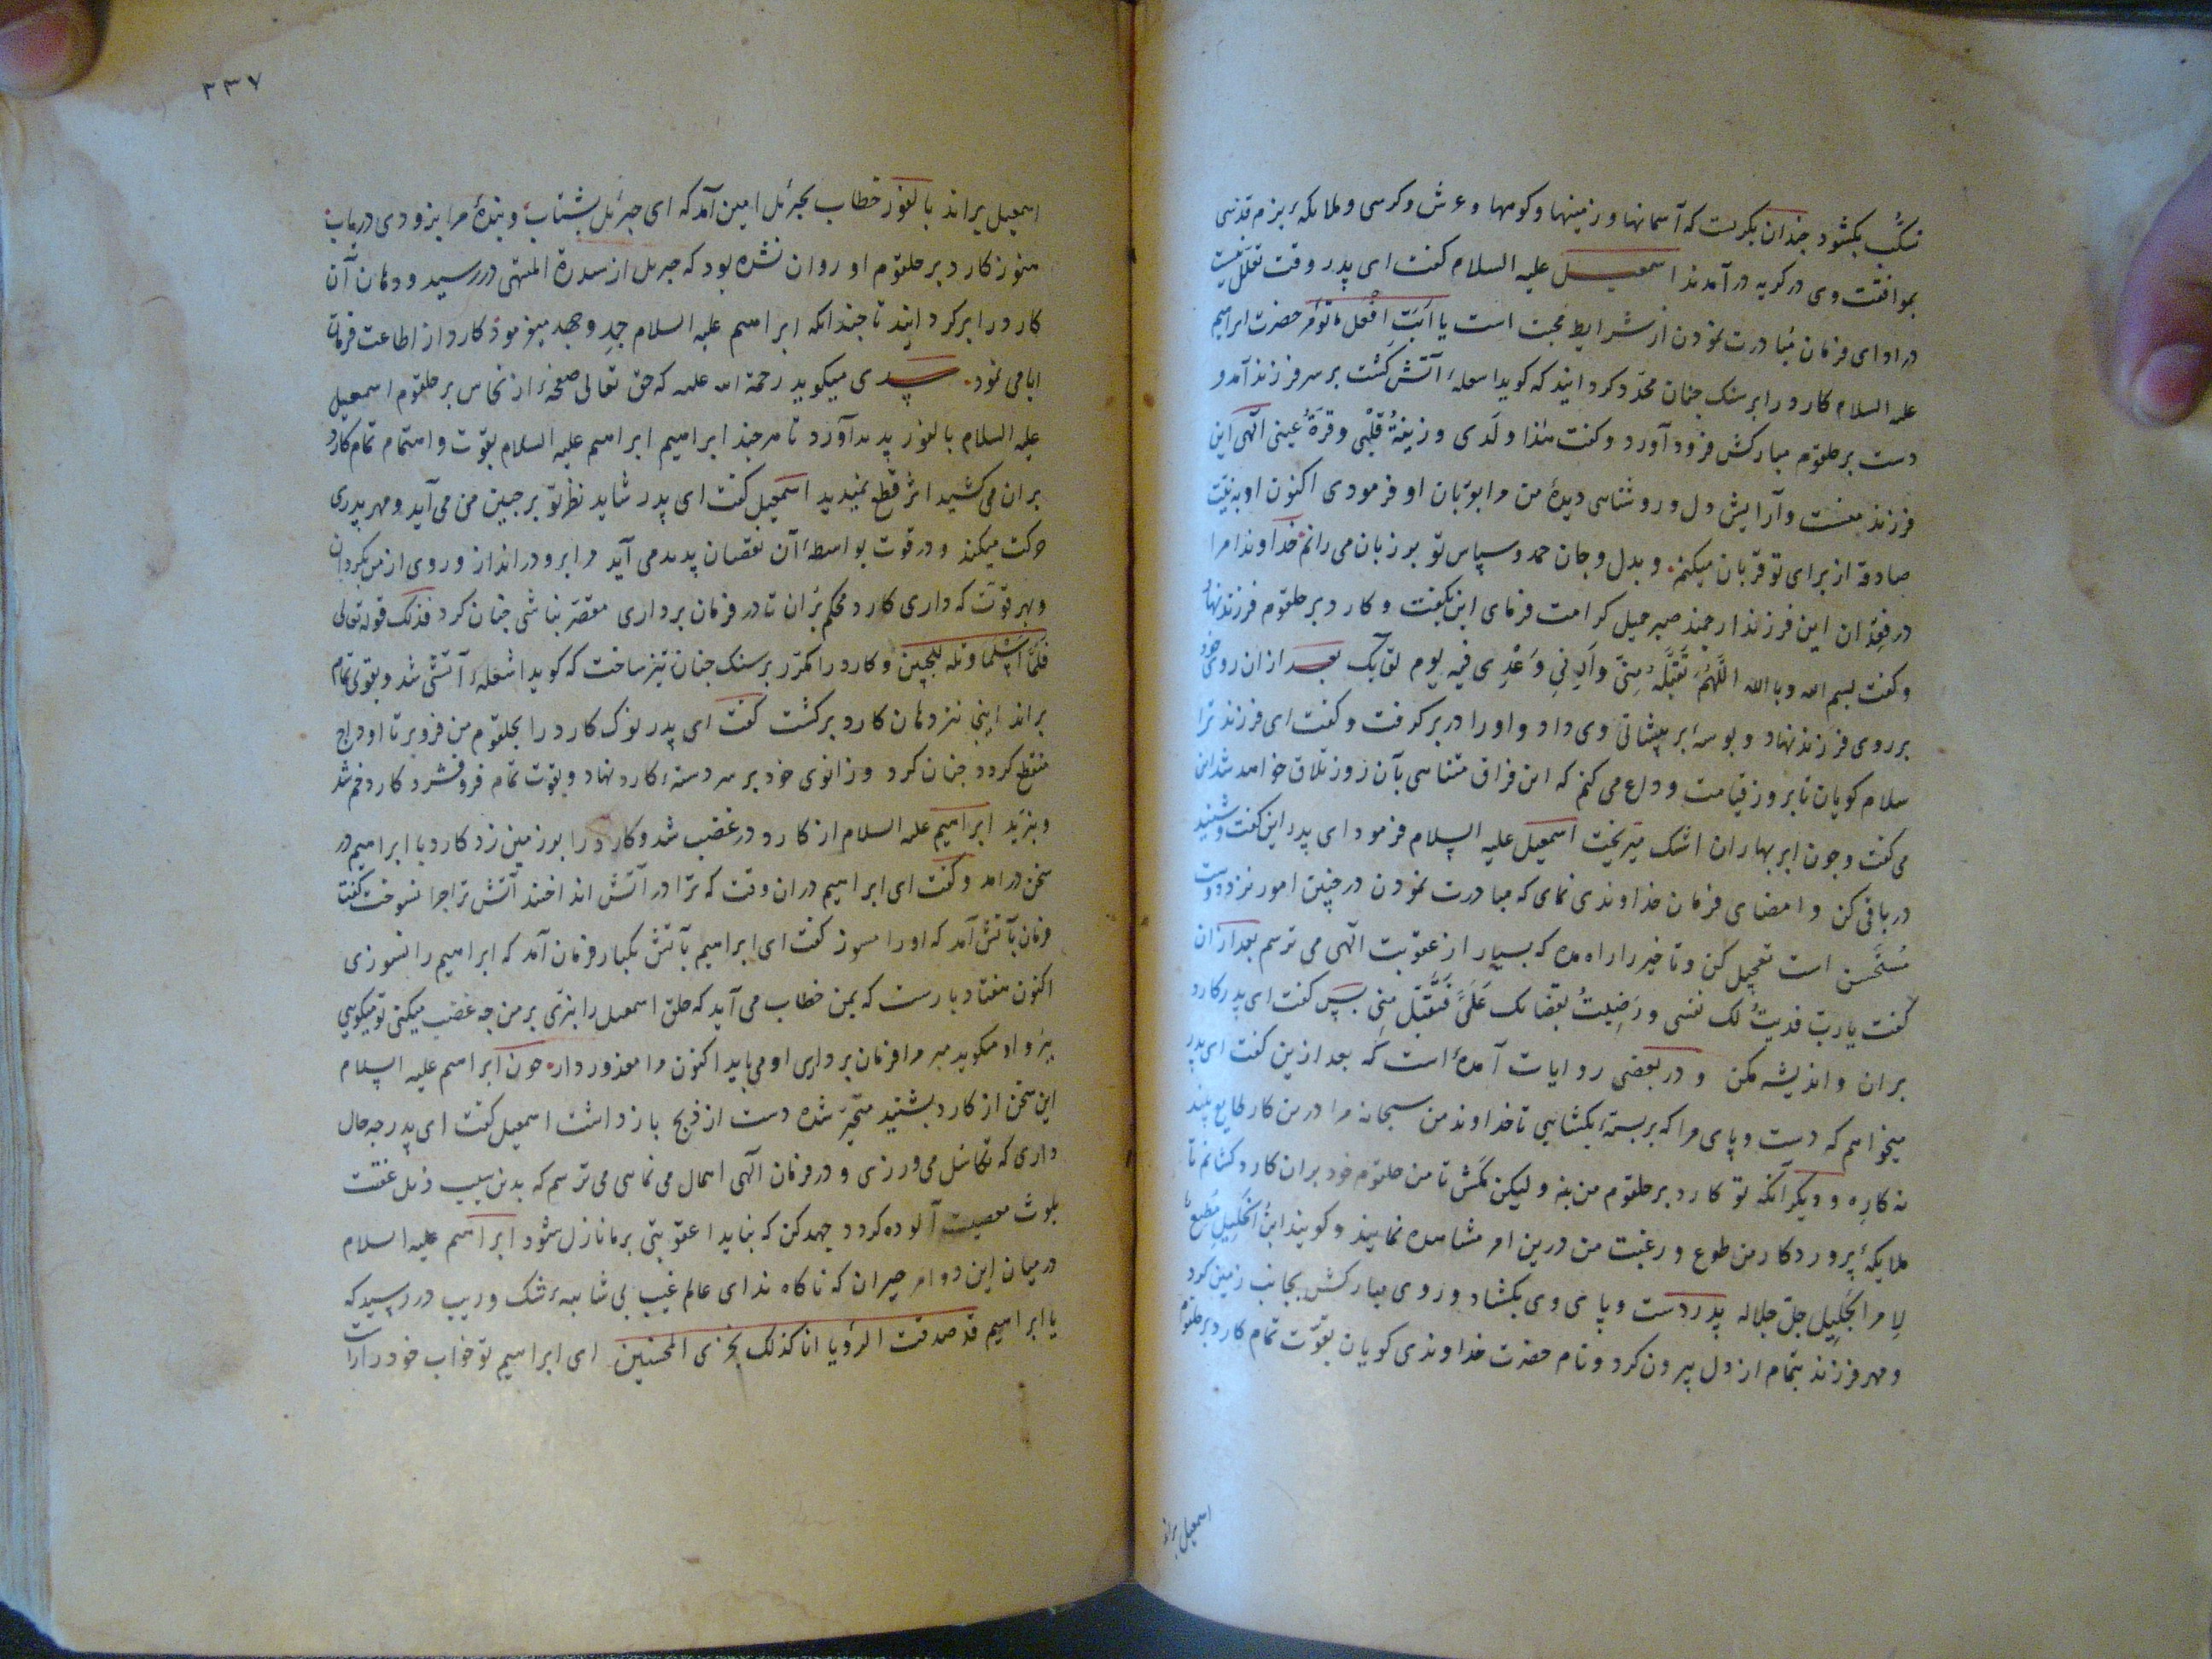 بکشود چندان بکریست که آسمانها و زمینها و کوهها و عرش و کرسی و ملایکهٔ بزم قدسی
بموافقت وی در کریه درآمدند اسمعیل علیه السلام کفت ای پدر وقت تعلل نیست
در ادای فرمان مبادرت نمودن از شرایط محبت است یا ابت افعل ما تؤمر حضرت ابراهیم
علیه السلام کارد را بر سنک چنان محدد کردانید که کویا شعلهٔ آتش کشت بر سر فرزند آمد و
دست بر حلقوم مبارکش فرود آورد و کفت هذا ولدی و زینة قلبی و قرة عینی الهی این
فرزند منست و آرایش دل و روشنایی دیدهٔ من مرا بقربان او فرمودی اکنون او به نیت
صادقه از برای تو قربان میکنم و بدل و جان حمد و سپاس تو بر زبان می رانم خداوندا مرا
در فقدان این فرزند ارجمند صبر جمیل کرامت فرمای این بکفت و کارد بر حلقوم فرزند نهاد
و کفت بسم الله و بالله اللهم تقبله منی و فیه یوم بعد ازان روی خود
بر روی فرزند نهاد و بوسهٔ بر پیشانی وی داد و او را در بر کرفت و کفت ای فرزند ترا
سلام کویان تا بروز قیامت وداع می کنم که این فراق متناسی بآن روز تلاق خواهد شد این
می کفت و چون ابر بهاران اشک میریخت اسمعیل علیه السلام فرمود ای پدر این کفت و شنید
در باقی کن و امضای فرمان خداوندی نمای که مبادرت نمودن در چنین امور نزد دوست
مستحسن است تعجیل کن و تاخیر را راه مده که بسیار از عقوبت الهی می ترسم بعد ازان
کفت یا رب فدیت لک نفسی و رضیت بقضائک علی فتقبل منی پس کفت ای پدر کارد
بران و اندیشه مکن و در بعضی روایات آمده است که بعد ازین کفت ای پدر
میخواهم که دست و پای مرا که بربستهٔ بکشایی تا خداوند من سبحانه مرا درین کار طایع بیند
نه کاره و دیکر آنکه تو کارد بر حلقوم من بنه و لیکن مکش تا من حلقوم خود بران کارد کشانم تا
ملایکهٔ پروردکار من طوع و رغبت من درین امر مشاهده نمایند و کویند ابن الخلیل مطیع
لامر الجلیل جل جلاله پدر دست و پای وی بکشاد و روی مبارکش بجانب زمین کرد
و مهر فرزند بتمام از دل بیرون کرد و نام حضرت خداوندی کویان بقوت تمام کارد بر حلقوم
اسمعیل براند
٣٣٧
اسمعیل براند بالفور خطاب بجبرئل امین آمد که ای جبرئل بشتاب و بندهٔ مرا بزودی دریاب
هنوز کارد بر حلقوم او روان نشده بود که جبرئل از سدرة المنتهی در رسید و دهان آن
کارد را برکردانید تا چندانکه ابراهیم علیه السلام جد و جهد میفرمود کارد از اطاعت فرمان
ابا می نمود سدی میکوید رحمة الله علیه که حق تعالی صفحهٔ از نحاس بر حلقوم اسمعیل
علیه السلام بالفور پدید آورد تا هر چند ابراهیم ابراهیم علیه السلام بقوت و اهتمام تمام کارد
بران می کشید اثر قطع نمیدید اسمعیل کفت ای پدر شاید نظر تو بر جبین من می آید و مهر پدری
حرکت میکند و در قوت بواسطهٔ آن نقصان پدید می آید مرا برو در انداز و روی از من بکردان
و بهر قوت که داری کارد محکم بران تا در فرمان برداری مقصر نباشی چنان کرد فذلک قوله تعالی
فلما اسلما و تله للجبین و کارد را مکرر بر سنک چنان تیز ساخت که کویا شعلهٔ آتشی شد و بقوی تمام
براند اینجا نیز دهان کارد برکشت کفت ای پدر نوک کارد را بحلقوم من فرو بر تا اوداج
منقطع کردد چنان کرد و زانوی خود بر سر دستهٔ کارد نهاد و بقوت تمام فرو فشرد کارد خم شد
و نبرید ابراهیم علیه السلام از کارد در غضب شد و کارد را بر زمین زد کارد با ابراهیم در
سخن درآمد و کفت ای ابراهیم دران وقت که ترا در آتش انداختند آتش ترا چرا نسوخت کفت
فرمان بآتش آمد که او را مسوز کفت ای ابراهیم بآتش یکبار فرمان آمد که ابراهیم را نسوزی
اکنون هفتاد بارست که بمن خطاب می آید که حلق اسمعیل را نبری بر من چه غضب میکنی تو میکویی
ببر و او میکوید مبر مرا فرمان برداری او می باید اکنون مرا معذور دار چون ابراهیم علیه السلام
این سخن از کارد بشنید متحیر شده دست از ذبح باز داشت اسمعیل کفت ای پدر چه حال
داری که تکاسل می ورزی و در فرمان الهی اهمال می نمایی می ترسم که بدین سبب ذیل عفت
بلوث معصیت آلوده کردد جهد کن که نباید عقوبتی بر ما نازل شود ابراهیم علیه السلام
در میان این دو امر حیران که ناکاه ندای عالم غیب بی شائبهٔ شک و ریب در رسید که
یا ابراهیم قد صدقت الرؤیا انا کذلک نجزی المحسنین ای ابراهیم تو خواب خود را راست